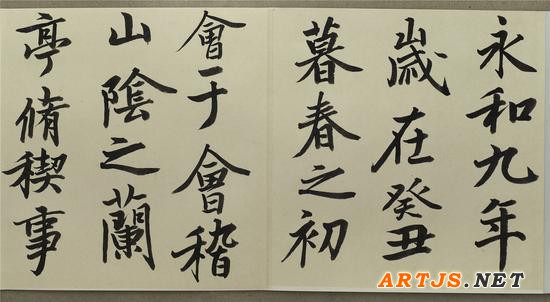 永和九年
歲在癸丑
暮春之初
會于會稽
山陰之蘭
亭脩稧事
ARTJS.NET